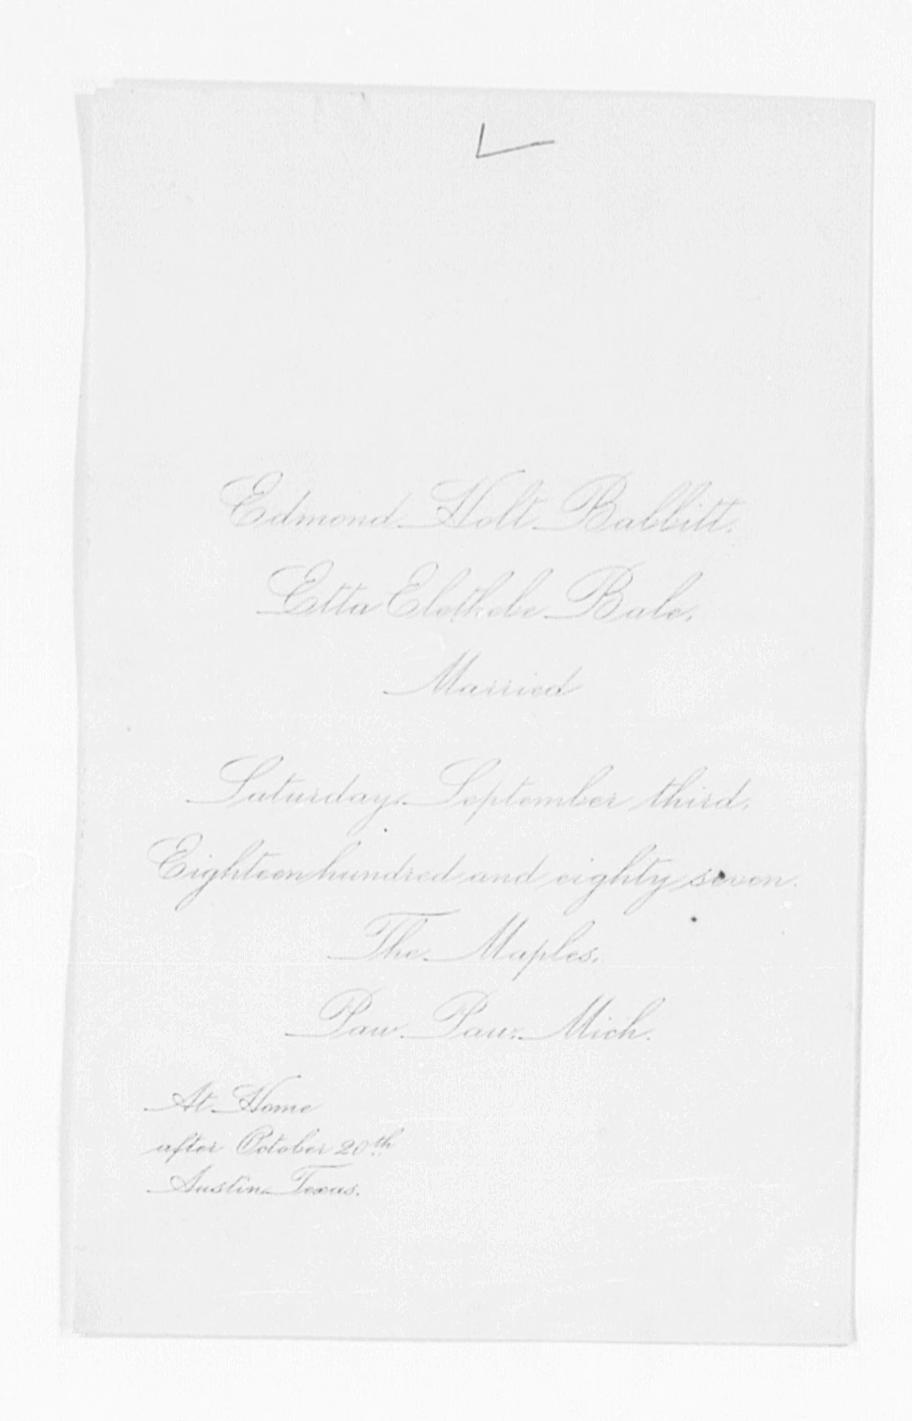 Edmond Holt Babbitt.
Etta Bale.
Married
Saturday September third.
Eighteen hundred and eighty seven.
The Maples.
Paw Paw. Mich.
At Home
after October 20th
Austin Texas.